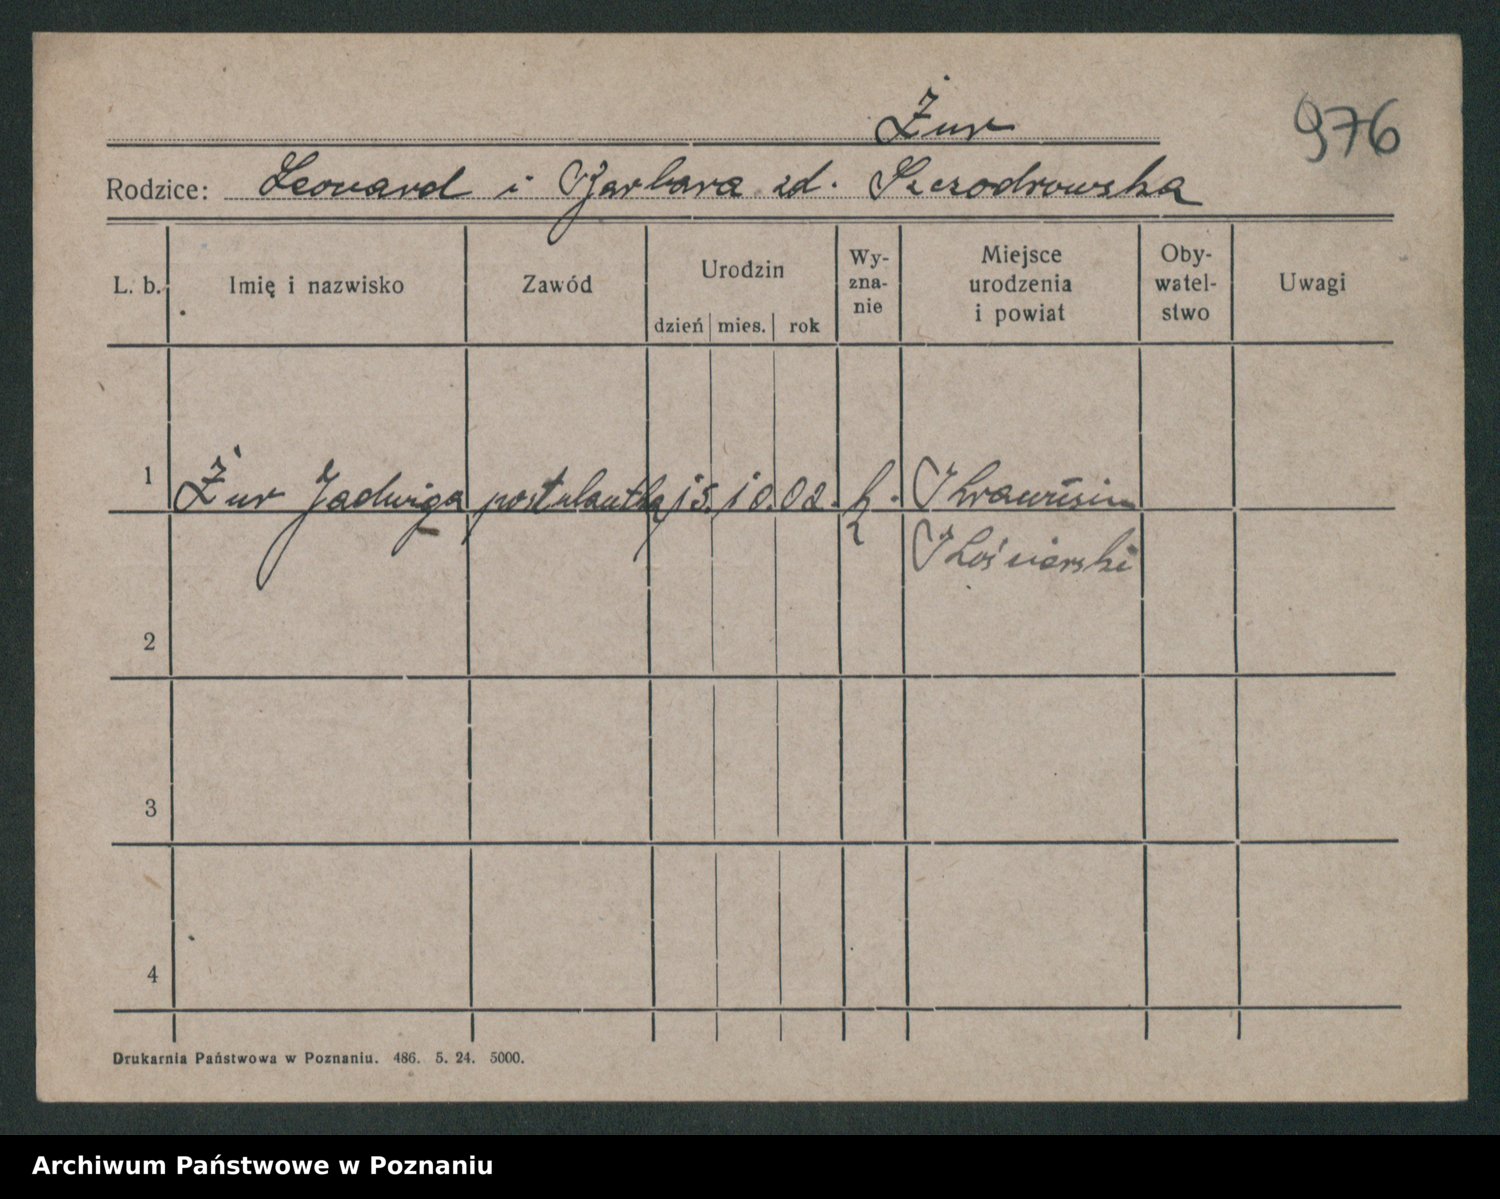 Żur
976
Rodzice: Leonard i Barbara zd. Szczodrowska
L. b. Imię i nazwisko Zawód Urodzin dzień mies. rok Wy-zna-nie Miejsce urodzenia i powiat Oby-watel-stwo Uwagi
1 Żur Jadwiga postulantka 15. 10. 02. k.
Kościerski
2
3
4
Drukarnia Państwowa w Poznaniu. 486. 5. 24. 5000.
Archiwum Państwowe w Poznaniu